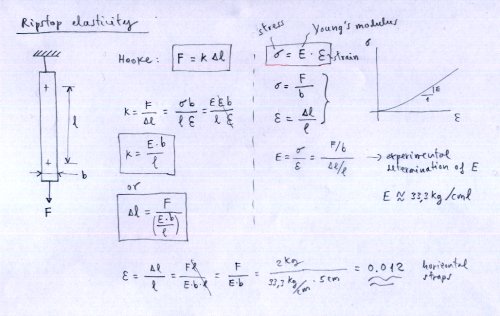 Ripstop elasticity
l
b
F
Hooke: F = k Δl
k = F/Δl = σb/lε = Eεb/lε
k = E·b/l
or
Δl = F/(E·b/l)
stress
Young's modulus
σ = E · ε
strain
σ = F/b
ε = Δl/l
E = σ/ε = F/b / Δl/l → experimental
determination of E
E ≈ 33,3 kg/cm
σ
E
1
ε
ε = Δl/l = Fl/E·b·l = F/E·b = 2 kg / 33,3 kg/cm · 5 cm = 0.012
horizontal
straps